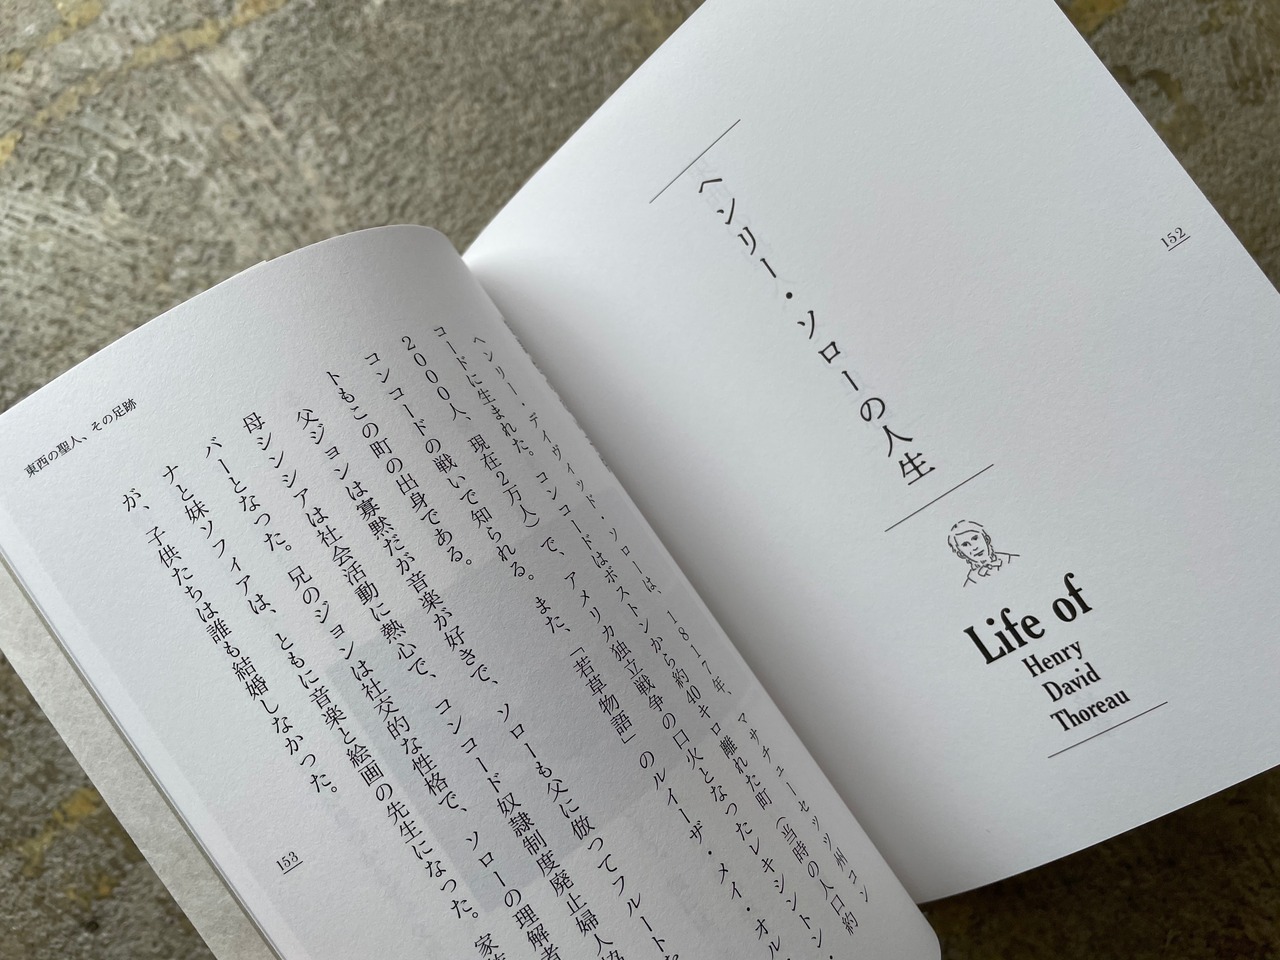 152
ヘンリー・ソローの人生
Life of
Henry
David
Thoreau
ヘンリー・デイヴィッド・ソローは、1817年、マサチューセッツ州コン
コードに生まれた。コンコードはボストンから約40キロ離れた町（当時の人口約
2000人、現在2万人）で、アメリカ独立戦争の口火となったレキシントン・
コンコードの戦いで知られる。また、「若草物語」のルイーザ・メイ・オル
トもこの町の出身である。
父ジョンは寡黙だが音楽が好きで、ソローも父に倣ってフルートを
母シンシアは社会活動に熱心で、コンコード奴隷制度廃止婦人協
バーとなった。兄のジョンは社交的な性格で、ソローの理解者
ナと妹ソフィアは、ともに音楽と絵画の先生になった。家族
が、子供たちは誰も結婚しなかった。
東西の聖人、その足跡
153